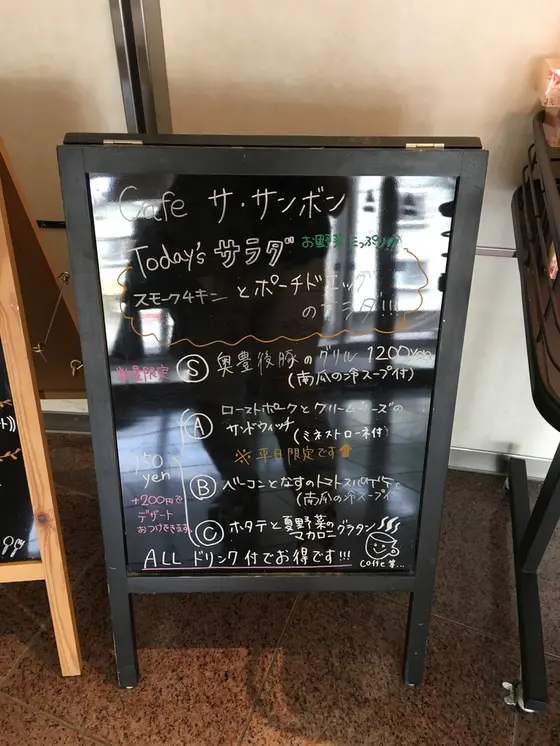 Cafe サ・サンボン
Today's サラダ お野菜たっぷり!!
スモークチキン とポーチドエッグ
のサラダ!!!
数量限定 Ⓢ 奥豊後豚のグリル 1200yen
(南瓜の冷スープ付)
Ⓐ ローストポークとクリームチーズの
サンドウィッチ (ミネストローネ付)
※平日限定です
yen
Ⓑ ベーコンとなすのトマトスパゲティ
(南瓜の冷スープ付
+200円で
デザート
おつけできます
Ⓒ ホタテと夏野菜の
マカロニグラタン
ALL ドリンク付でお得です!!!
Coffe 等...